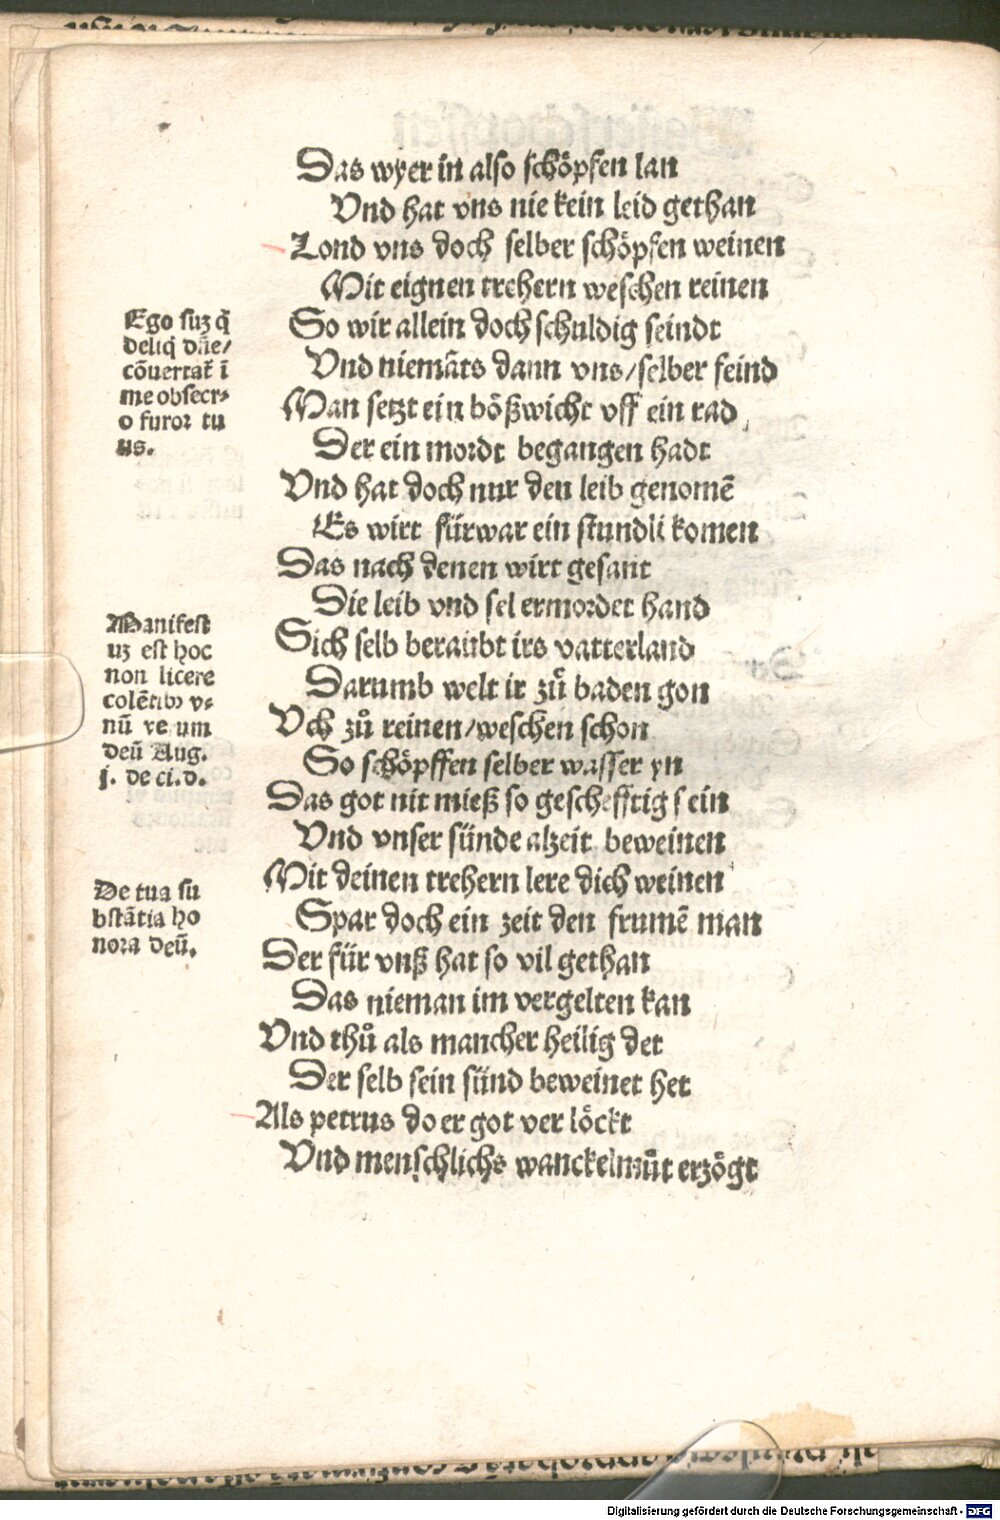 Das wyer in also schöpfen lan
Vnd hat vns nie kein leid gethan
Lond vns doch selber schöpfen weinen
Mit eignen trehern weschen reinen
So wir allein doch schuldig seindt
Vnd niemāts dann vns/selber feind
Man setzt ein bößwicht vff ein rad
Der ein mordt begangen hadt
Vnd hat doch nur den leib genomē
Es wirt fürwar ein stundli komen
Das nach denen wirt gesant
Die leib vnd sel ermordet hand
Sich selb beraubt irs vatterland
Darumb welt ir zů baden gon
Vch zů reinen/weschen schon
So schöpffen selber wasser yn
Das got nit mieß so geschefftig sein
Vnd vnser sünde alzeit beweinen
Mit deinen trehern lere dich weinen
Spar doch ein zeit den frumē man
Der für vnß hat so vil gethan
Das nieman im vergelten kan
Vnd thů als mancher heilig det
Der selb sein sünd beweinet het
Als petrus do er got ver löckt
Vnd menschlichs wanckelmůt erzögt
Ego suꝫ q̄
deliq̄ dn̄e/
cōuertat̄ ī
me obsecr⸗
o furor tu
us.
Manifest
uꝫ est hoc
non licere
colētibꝰ v⸗
nū verum
deū Aug.
j. de ci.d.
De tua su
bstātia ho
nora deū.
Digitalisierung gefördert durch die Deutsche Forschungsgemeinschaft - DFG